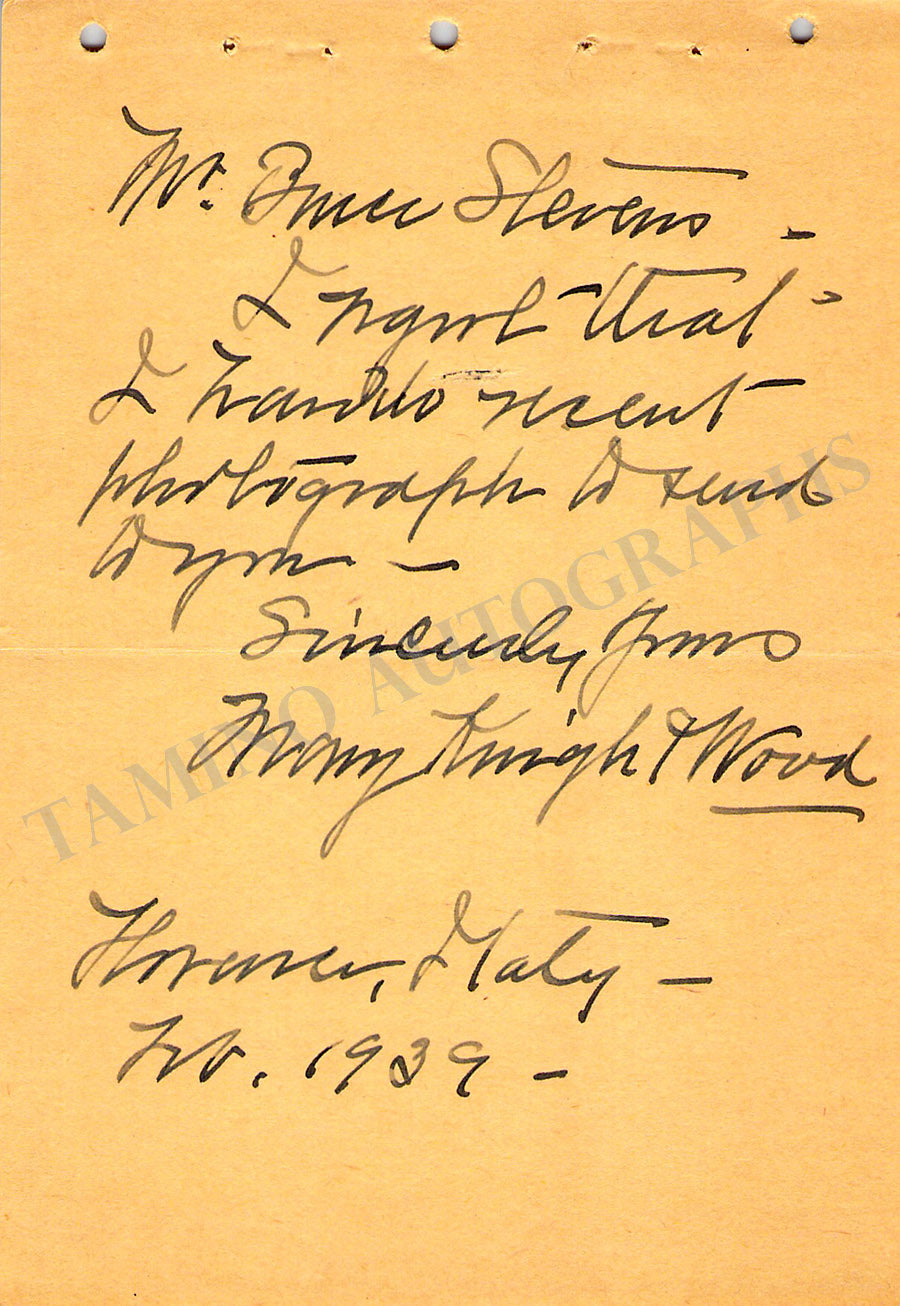 Mr. Bruce Stevens -
I regret that
I have no recent
photograph to send
to you -
Sincerely yours
Mary Knight Wood
Florence, Italy -
Feb. 1939 -
TAMINO AUTOGRAPHS